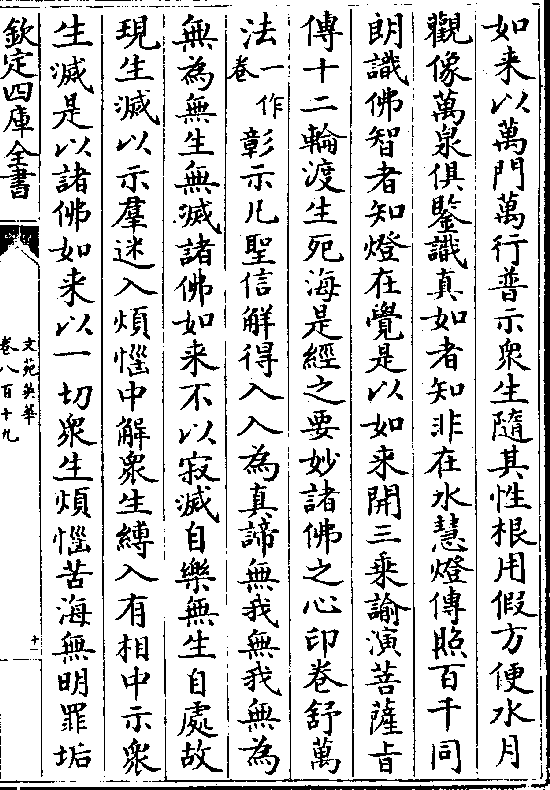 如来以萬門萬行普示衆生隨其性根用假方便水月
觀像萬泉俱鑒識真如者知非在水慧燈傳照百千同
朗識佛智者知燈在覺是以如来開三乘諭演菩薩㫖
傳十二輪渡生死海是經之要妙諸佛之心印卷舒萬
法一作卷彰示凡聖信解得入入為真諦無我無我無為
無為無生無滅諸佛如来不以寂滅自樂無生自處故
現生滅以示羣迷入煩惱中解衆生縛入有相中示衆
生滅是以諸佛如来以一切衆生煩惱苦海無明罪垢
欽定四庫全書
文苑英華
卷八百十九
十一